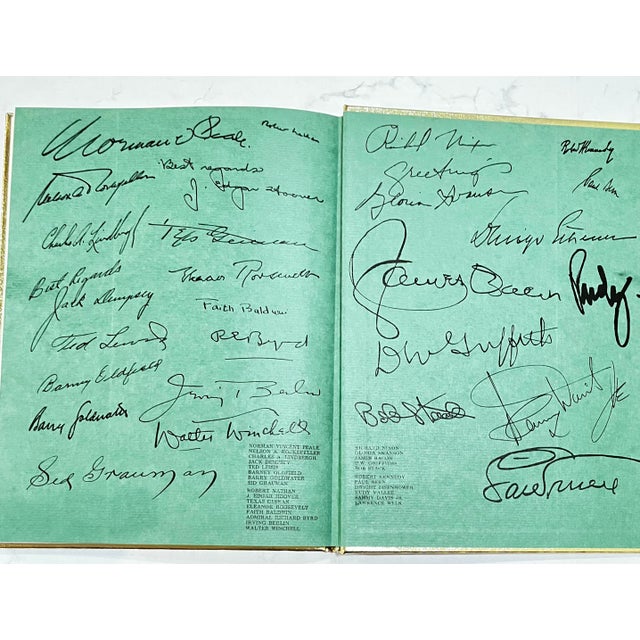 Norman V Peale
Robert Nathan
Best regards
J. Edgar Hoover
Charles A. Lindbergh
Texas Guinan
Best Regards
Jack Dempsey
Eleanor Roosevelt
Faith Baldwin
Ted Lewis
R E Byrd
Barney Oldfield
Irving Berlin
Barry Goldwater
Walter Winchell
Sid Grauman
NORMAN VINCENT PEALE
NELSON A. ROCKEFELLER
CHARLES A. LINDBERGH
JACK DEMPSEY
TED LEWIS
BARNEY OLDFIELD
BARRY GOLDWATER
SID GRAUMAN
ROBERT NATHAN
J. EDGAR HOOVER
TEXAS GUINAN
ELEANOR ROOSEVELT
FAITH BALDWIN
ADMIRAL RICHARD BYRD
IRVING BERLIN
WALTER WINCHELL
Richard Nixon
Robert Kennedy
Greetings
Gloria Swanson
Dwight Eisenhower
Rudy
D W Griffith
Bob Stack
RICHARD NIXON
GLORIA SWANSON
D.W. GRIFFITH
BOB STACK
ROBERT KENNEDY
DWIGHT EISENHOWER
RUDY VALLEE
SAMMY DAVIS JR.
LAWRENCE WELK